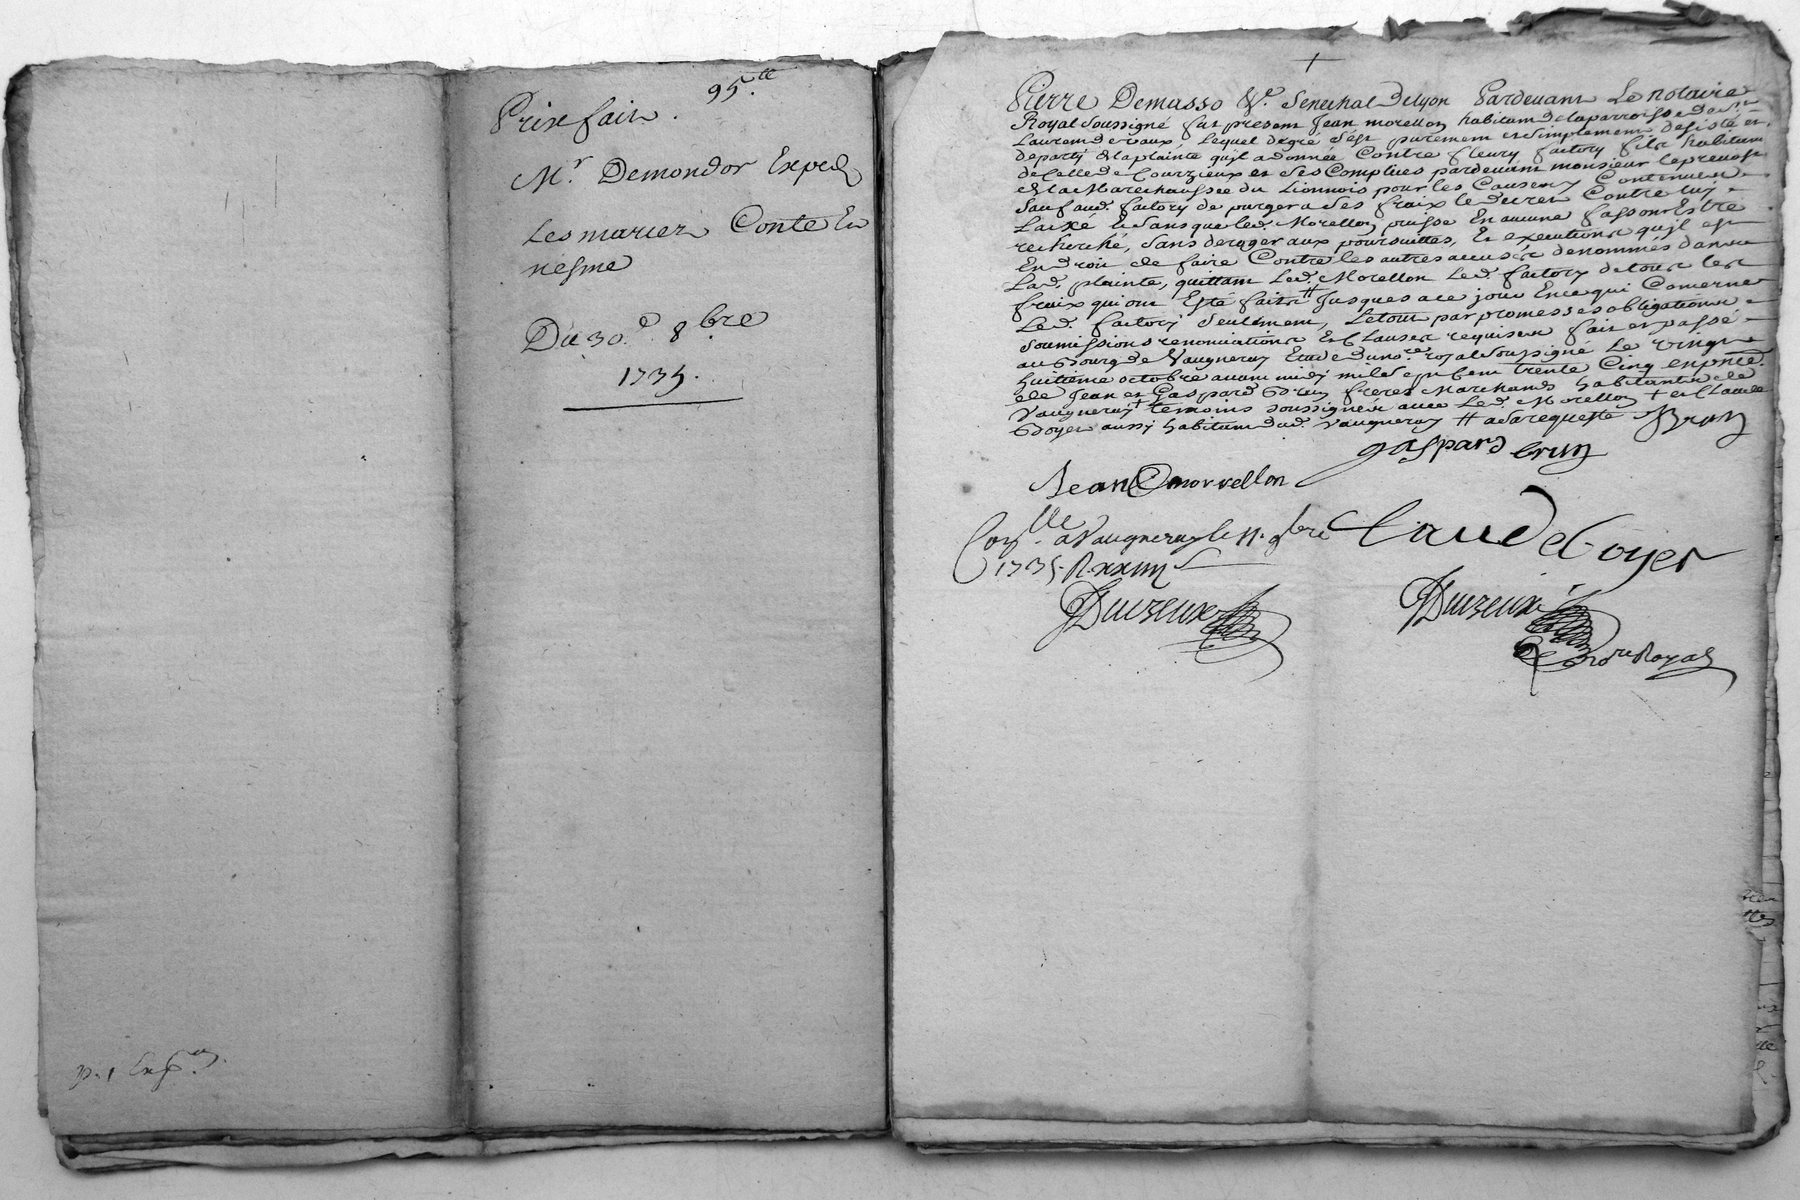 95.tt
Prixfait.
Mr. Demondor Exped
Les mariez Conte En
nesme
Du 30.e 8.bre
1735.
p. 1 Exp.on
Pierre Demasso &c. Senechal Delyon Pardevant Le notaire
Royal soussigné fut present Jean morellon habitant delaparroisse de st
Laurent de vaux, Lequel degré s'est purement et simplement desisté et
departy de la plainte qu'jl a donnée Contre fleury factory fils habitant
de Celle de Courzieux et ses Complices pardevant monsieur leprevost
de la Marechaussée du Lionnois pour les Causes y Contenues
sauf aud. factory de purger a ses fraix le decret Contre luy
Laxé Et sans que led. Morellon puisse En aucune fasson Estre
recherché, sans deroger aux poursuittes, Et executions qu'jl est
En droit de faire Contre les autres accusés denommés dans
Lad. plainte, quittant Led. Morellon Led. factory de tous les
fraix qui ont Esté faits # Jusques a ce jour En ce qui Concerne
Led. factory seulement, Le tout par promesses obligations
soumissions renonciations Et Clauses requises fait et passé
au Bourg de Vaugneray Etude du no.re royal soussigné Le vingt
huitieme octobre avant midy mil sept Cent trente Cinq en pnce
de Jean et Gaspard Brun freres Marchands habitants de
Vaugneray + temoins soussignés avec Led. Morellon + et Claude
Boyer aussy habitant dud. Vaugneray # a sa requeste JBrun
gaspard brun
Jean morrellon
Con.lle a Vaugneray le 11. 9bre
Claude boyer
1735. R. xxiiij s
Duizeux
Duizeux
no.re Royal